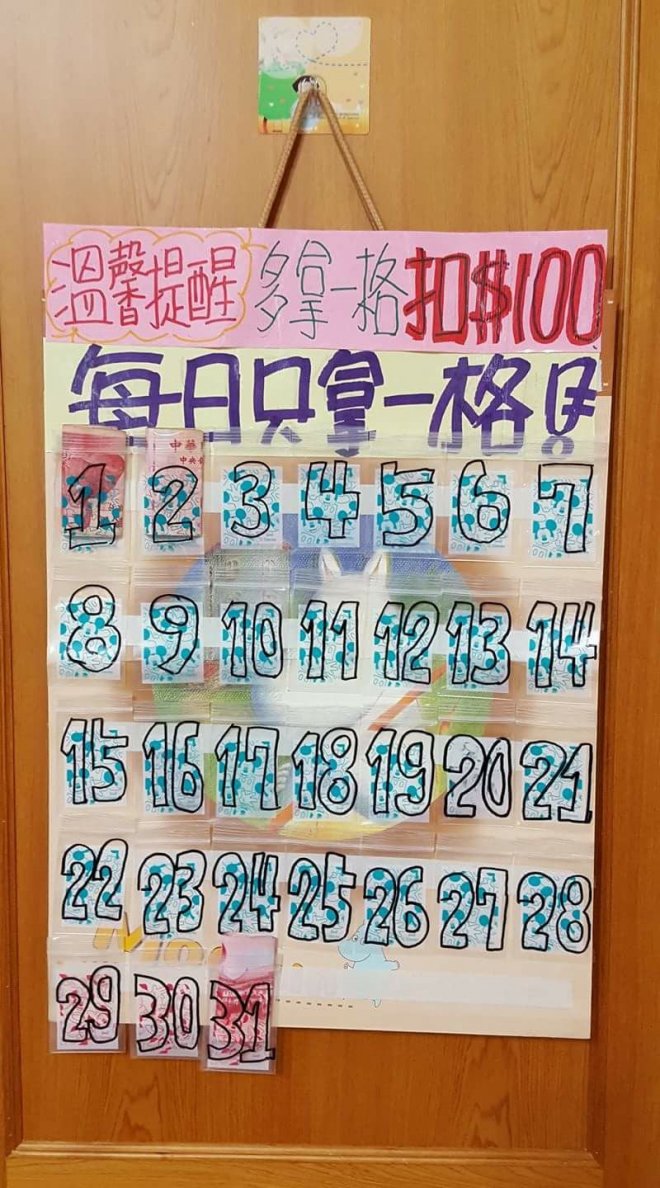 溫馨提醒 多拿一格 扣$100
每日只拿一格!
中華
中央
1 2 3 4 5 6 7
8 9 10 11 12 13 14
15 16 17 18 19 20 21
22 23 24 25 26 27 28
29 30 31